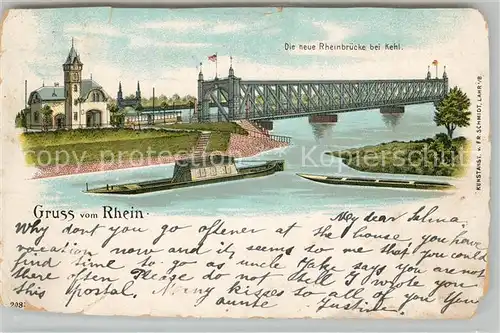 Die neue Rheinbrücke bei Kehl.
KUNSTANST. v. FR. SCHMIDT, LAHR i/B.
Gruss vom Rhein.
My dear Selma,
Why dont you go oftener at the house, you have
vacation now and it seems to me that you could
find time to go as uncle Jake says you are not
there often Please do not tell I wrote you
this Postal. Many kisses to all of you Your
aunte Justine.
208